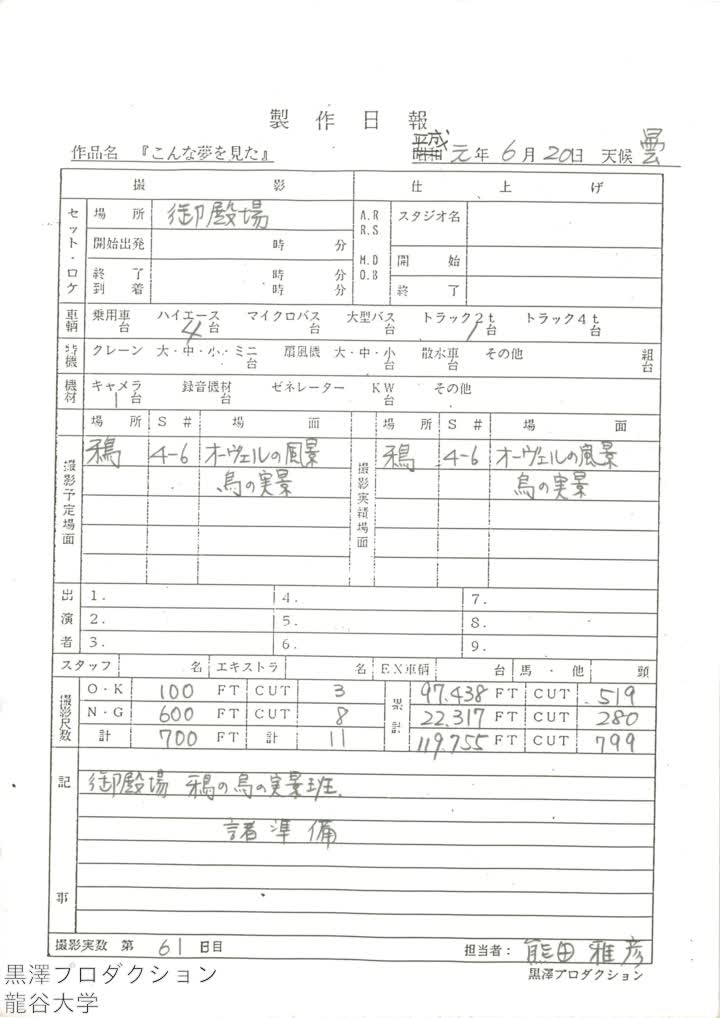 製作日報
作品名 『こんな夢を見た』 平成 昭和 元年 6月 20日 天候 曇
撮影 仕上げ
セット・ロケ 場所 御殿場 A.R R.S スタジオ名
開始出発 時 分
M.D O.B 開始
終了 時 分
到着 時 分 終了
車輌 乗用車 台 ハイエース 4台 マイクロバス 台 大型バス 台 トラック2t 1台 トラック4t 台
特機 クレーン 大・中・小・ミニ 台 扇風機 大・中・小 台 散水車 台 その他 組 台
機材 キャメラ 1台 録音機材 ゼネレーター KW 台 その他
場所 S# 場面 場所 S# 場面
撮影予定場面 鴉 4-6 オーヴェルの風景 撮影実績場面 鴉 4-6 オーヴェルの風景
烏の実景 烏の実景
出演者 1. 4. 7.
2. 5. 8.
3. 6. 9.
スタッフ 名 エキストラ 名 EX車輌 台 馬・他 頭
撮影尺数 O・K 100 FT CUT 3 累計 97.438 FT CUT 519
N・G 600 FT CUT 8 22.317 FT CUT 280
計 700 FT 計 11 119.755 FT CUT 799
記事
御殿場 鴉の烏の実景班.
諸準備
撮影実数 第 61日目 担当者: 熊田雅彦
黒澤プロダクション
黒澤プロダクション
龍谷大学